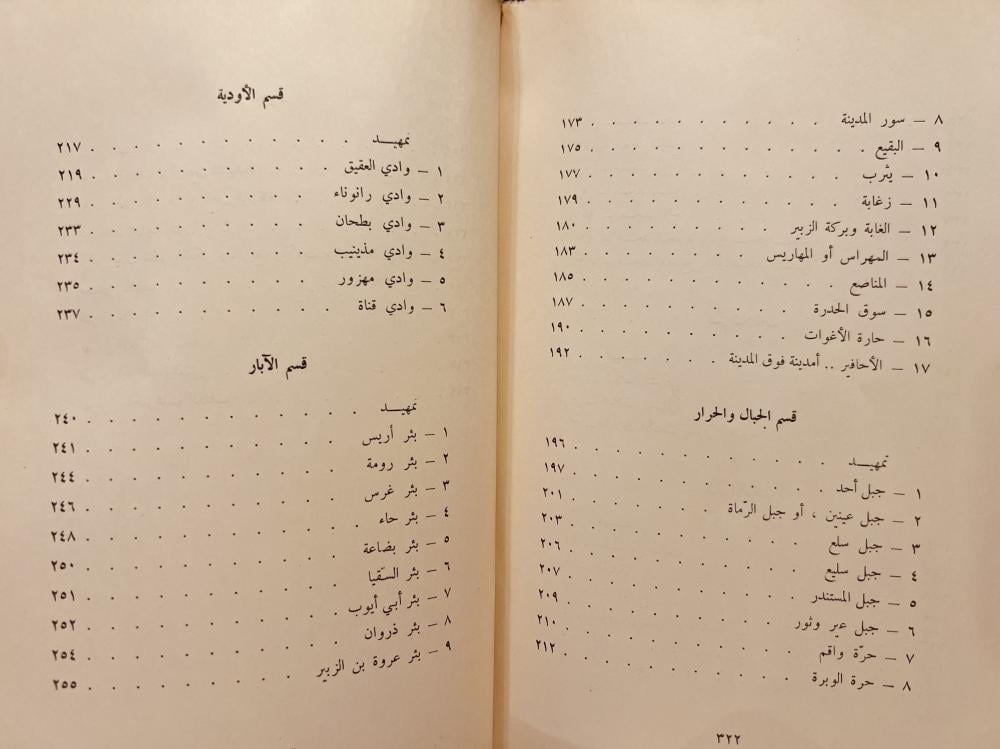 ٨ – سور المدينة . . . . . . . . . . . ١٧٣
٩ – البقيع . . . . . . . . . . . ١٧٥
١٠ – يثرب . . . . . . . . . . . ١٧٧
١١ – زغابة . . . . . . . . . . . ١٧٩
١٢ – الغابة وبركة الزبير . . . . . . . . ١٨٠
١٣ – المهراس أو المهاريس . . . . . . . ١٨٣
١٤ – المناصع . . . . . . . . . . ١٨٥
١٥ – سوق الحدرة . . . . . . . . . ١٨٧
١٦ – حارة الأغوات . . . . . . . . . ١٩٠
١٧ – الأحافير .. أمدينة فوق المدينة . . . . . . ١٩٢
قسم الجبال والحرار
تمهيـــد . . . . . . . . . . . ١٩٦
١ – جبل أحد . . . . . . . . . . ١٩٧
٢ – جبل عينين ، أو جبل الرّماة . . . . . . ٢٠١
٣ – جبل سلع . . . . . . . . . . ٢٠٣
٤ – جبل سليع . . . . . . . . . . ٢٠٦
٥ – جبل المستندر . . . . . . . . . ٢٠٧
٦ – جبل عير وثور . . . . . . . . . ٢٠٩
٧ – حرّة واقم . . . . . . . . . . ٢١٠
٨ – حرة الوبرة . . . . . . . . . . ٢١٢
٣٢٢
قسم الأودية
تمهيـــد . . . . . . . . . . . ٢١٧
١ – وادي العقيق . . . . . . . . . . ٢١٩
٢ – وادي رانوناء . . . . . . . . . . ٢٢٩
٣ – وادي بطحان . . . . . . . . . . ٢٣٣
٤ – وادي مذينيب . . . . . . . . . . ٢٣٤
٥ – وادي مهزور . . . . . . . . . . ٢٣٥
٦ – وادي قناة . . . . . . . . . . ٢٣٧
قسم الآبار
تمهيـــد . . . . . . . . . . . ٢٤٠
١ – بئر أريس . . . . . . . . . . ٢٤١
٢ – بئر رومة . . . . . . . . . . ٢٤٤
٣ – بئر غرس . . . . . . . . . . ٢٤٦
٤ – بئر حاء . . . . . . . . . . ٢٤٨
٥ – بئر بضاعة . . . . . . . . . . ٢٥٠
٦ – بئر السّقيا . . . . . . . . . . ٢٥١
٧ – بئر أبي أيوب . . . . . . . . . ٢٥٢
٨ – بئر ذروان . . . . . . . . . . ٢٥٤
٩ – بئر عروة بن الزبير . . . . . . . . ٢٥٥